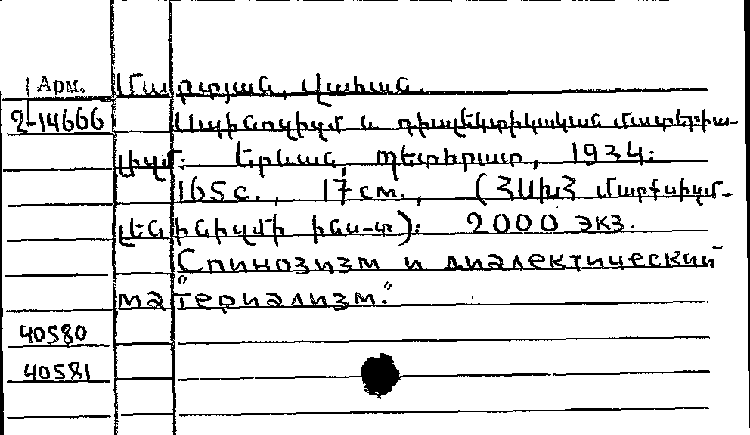 Арм. Մարտյան, Վահան.
2-14666 Սպինոզիզմ և դիալեկտիկական մատերիա-
լիզմ: Երևան, պետհրատ, 1934:
165с., 17 cm., (ՀՍԽՀ մարքսիզմ-
լենինիզմի ինս-տ): 2000 экз.
"Спинозизм и диалектический
материализм."
40580
40581